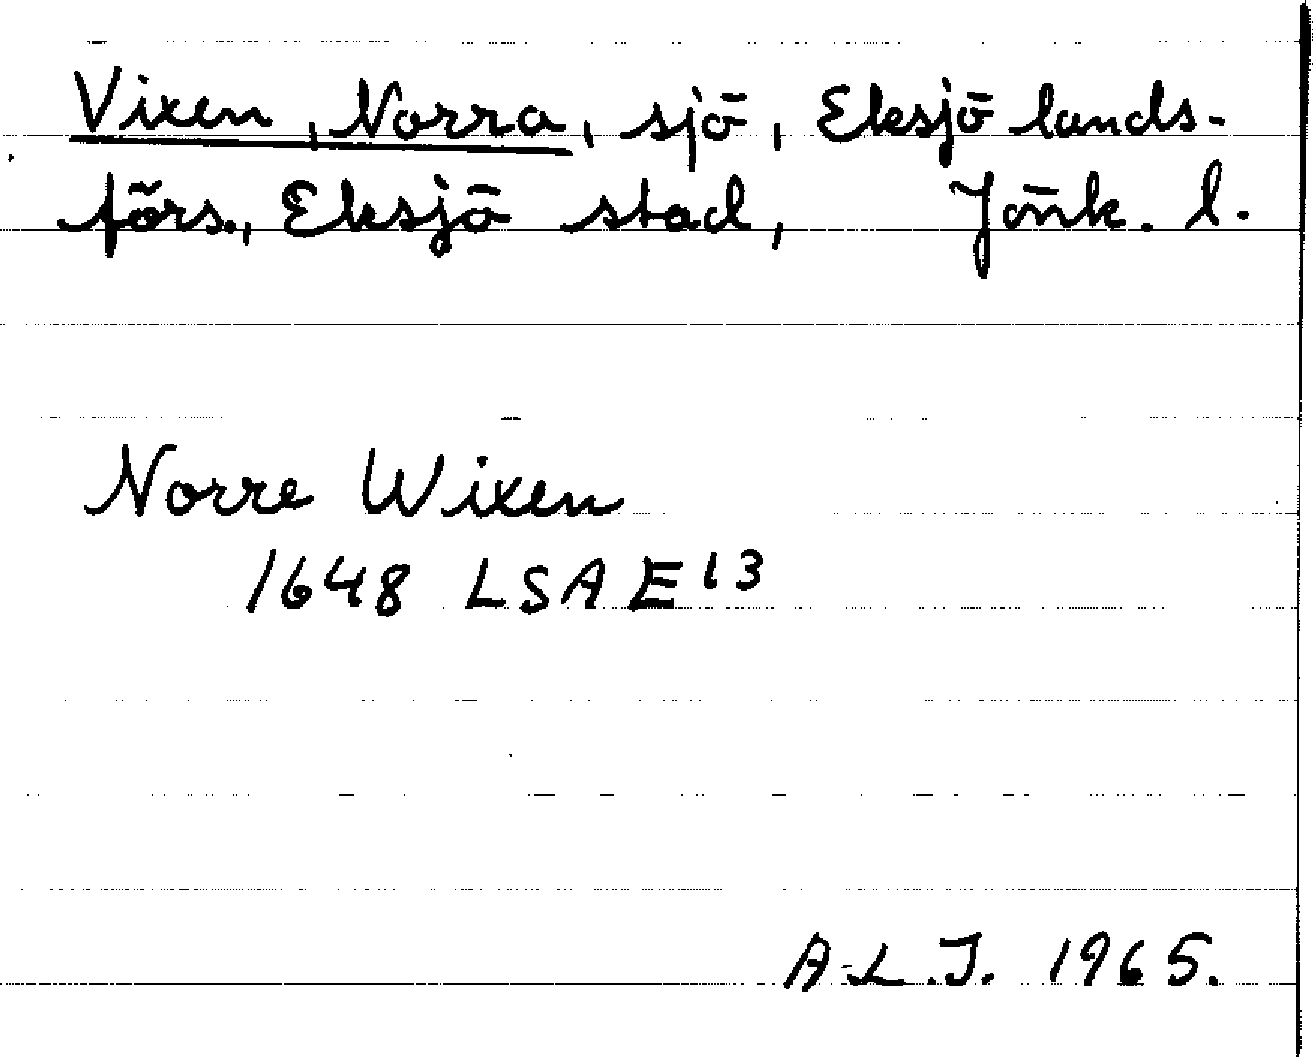 Vixen, Norra, sjö, Eksjö lands-
förs., Eksjö stad, Jönk. l.
Norre Wixen
1648 LSA E 13
A-L.J. 1965.